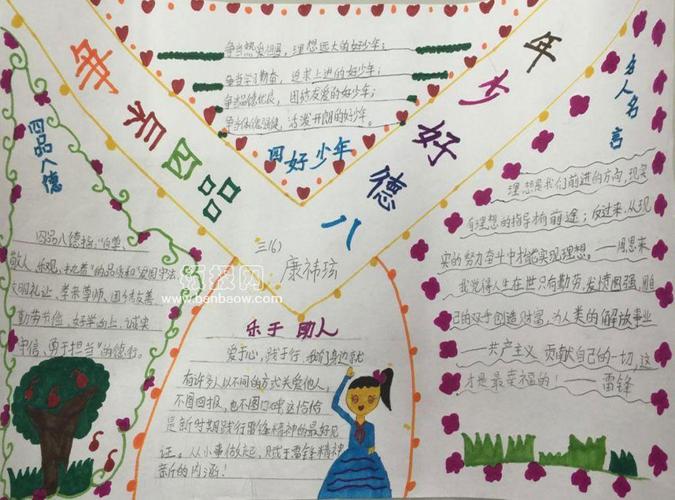 争弟四品八德好少年
争当热爱祖国，理想远大的好少年；
争当学习勤奋，追求上进的好少年；
争当品德优良，团结友爱的好少年；
争当体魄强健，活泼开朗的好少年。
四好少年
四品八德
四品八德指："自尊、
敬人、乐观、"的品质和"爱国守法、
文明礼让、孝亲尊师、团结友善、
勤劳节俭、好学向上、诚实
守信、勇于担当"的德行。
三(6)
康祎玹
乐于助人
爱于心，践于行，我们身边就
有许多人以不同的方式关爱他人，
不图回报，也不图口碑这恰恰
是新时期践行雷锋精神的最好见
证。从小事做起，赋于雷锋精神
新的内涵！
名人名言
理想是我们前进的方向，现实
有理想的指导才有前途；反过来，从现
实的努力奋斗中才能实现理想。——周恩来
我觉得人生在世只有勤劳，发愤图强，用自
己的双手创造财富，为人类的解放事业
——共产主义 贡献自己的一切，这
才是最幸福的！——雷锋
班报网
www.banbaow.com